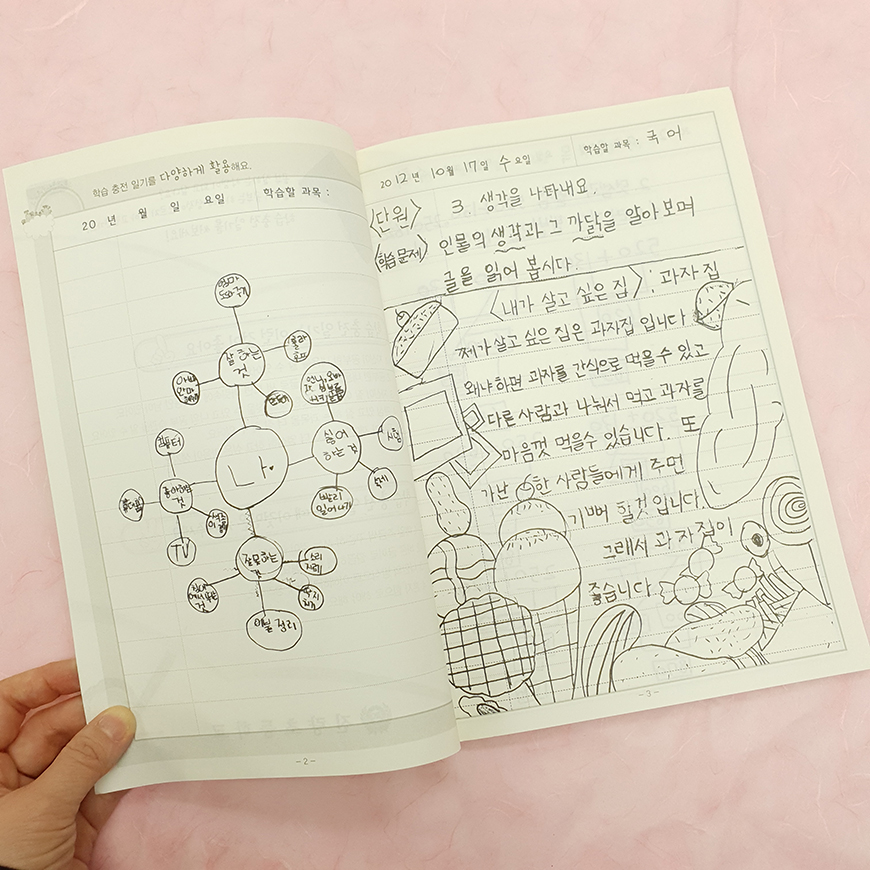 학습 충전 일기를 다양하게 활용해요.
20 년 월 일 요일 학습할 과목 :
잘 하는
것
싫어
하는 것
나.
컴퓨터
좋아하는
것
TV
빨리
일어나기
숙제
잘못하는
것
소리
이불 정리
- 2 -
2012년 10월 17일 수요일 학습할 과목 : 국어
<단원> 3. 생각을 나타내요.
<학습문제> 인물의 생각과 그 까닭을 알아 보며
글을 읽어 봅시다.
<내가 살고 싶은 집> : 과자 집
제가 살고 싶은 집은 과자집 입니다
왜냐하면 과자를 간식으로 먹을수 있고
다른 사람과 나눠서 먹고 과자를
마음껏 먹을수 있습니다. 또
가난한 사람들에게 주면
기뻐 할것 입니다.
그래서 과자집이
좋습니다.
- 3 -